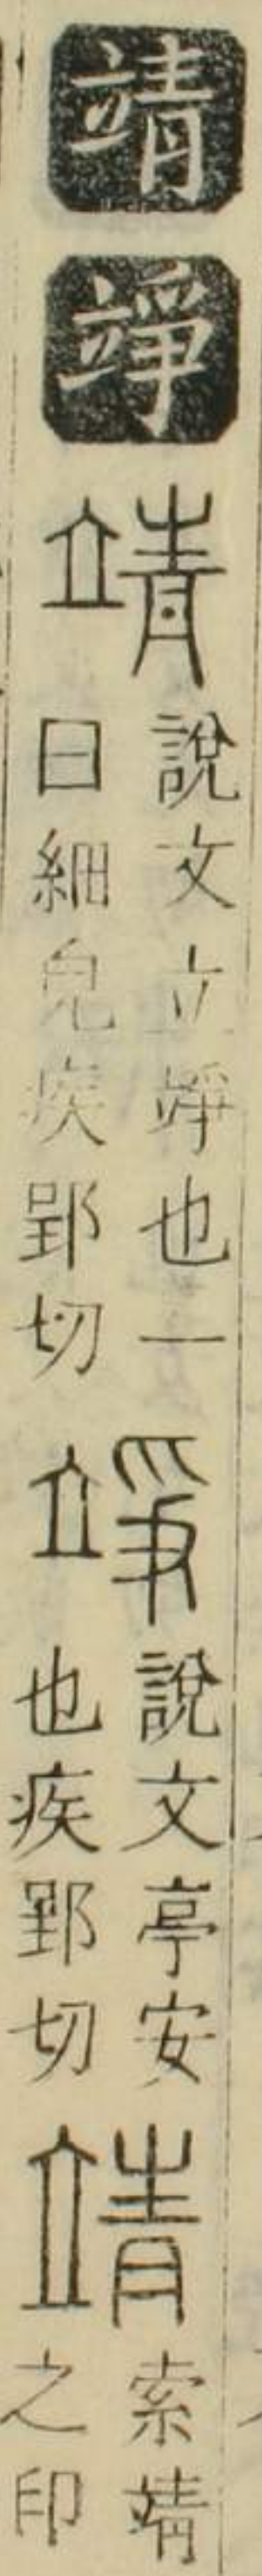 靖
竫
靖
說文立竫也一
曰細皃疾郢切
竫
說文亭安
也疾郢切
靖
索靖
之印